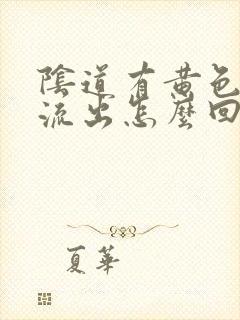 陰道有黃色
流出怎麼回
夏華